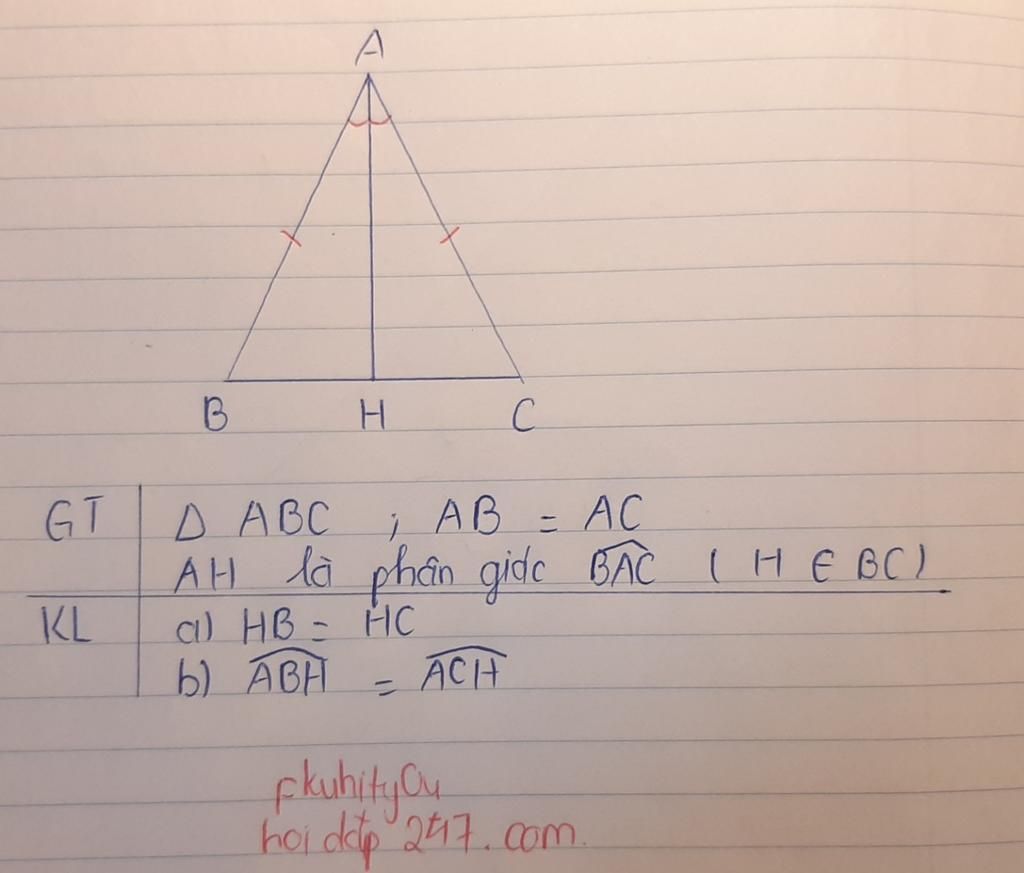 A
B H C
GT Δ ABC ; AB = AC
AH là phân giác BAC ( H ∈ BC )
KL a) HB = HC
b) ABH = ACH
fkuhity0u
hoi đáp 247. com.